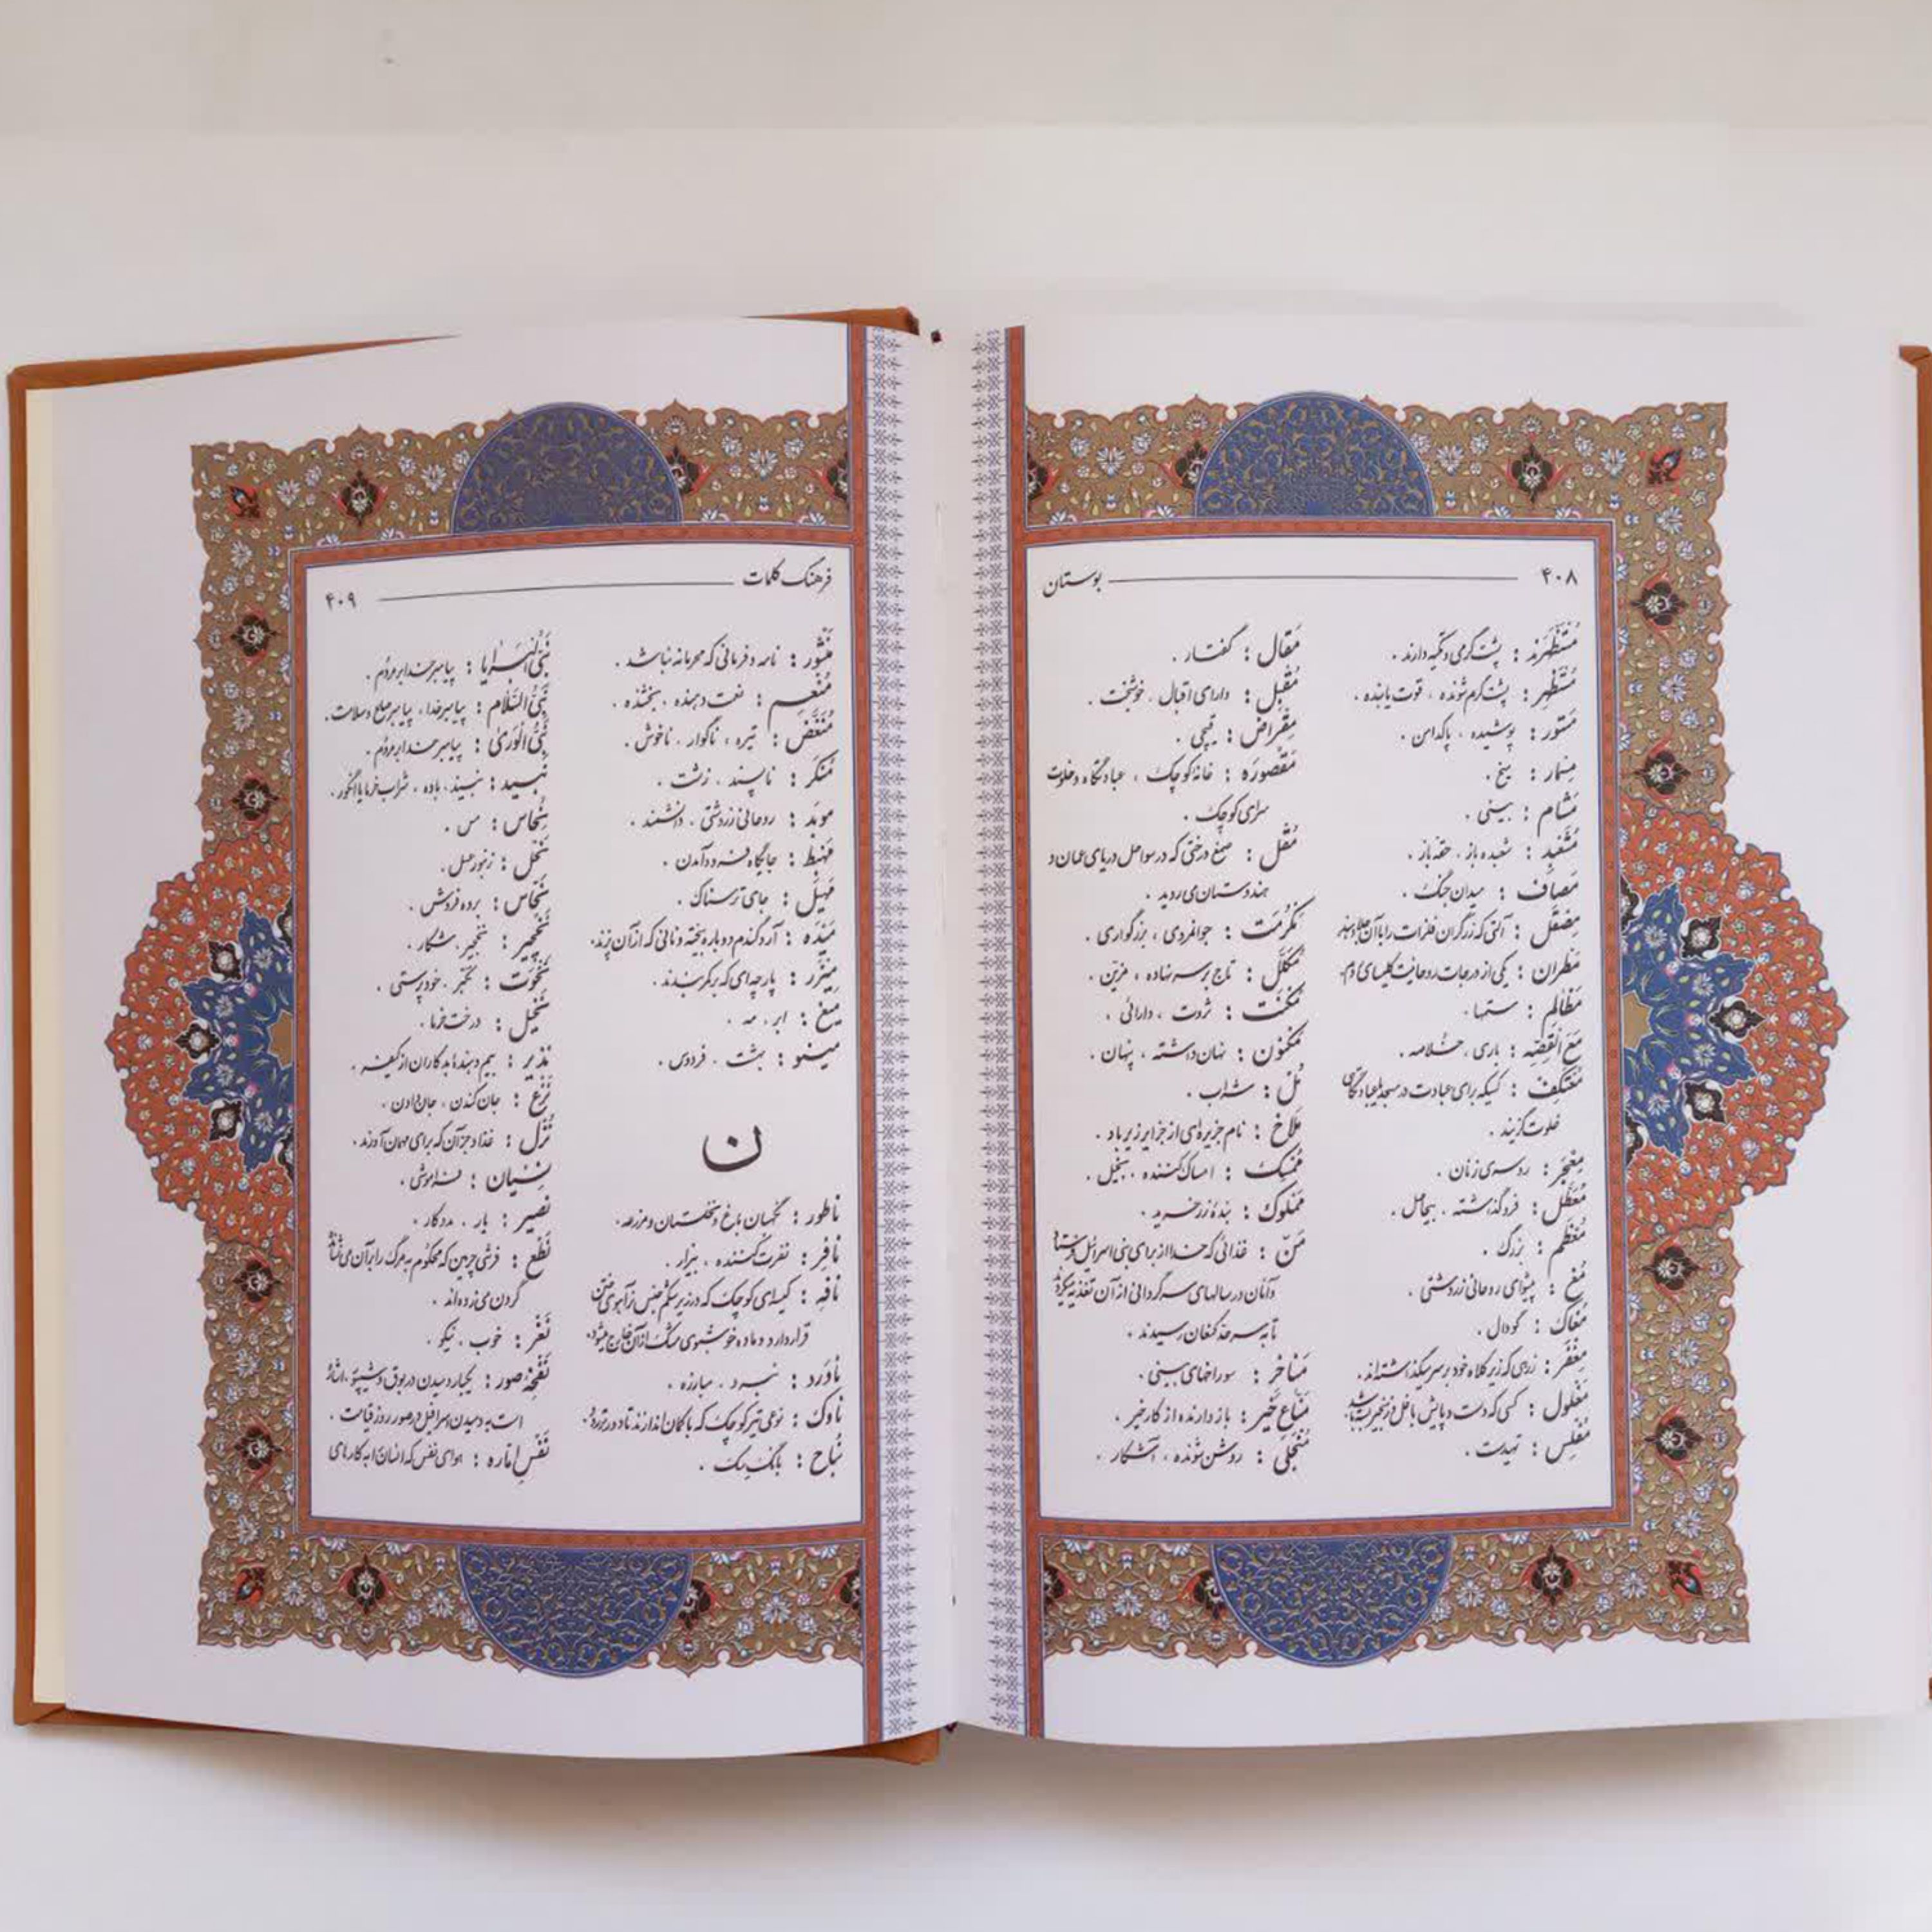 ۴۰۸ بوستان
مُسْتَظْهَرند : پشت گرمی و تکیه دارند .
مُسْتَظْهِر : پشت گرم شونده ، قوت یابنده .
مَسْتور : پوشیده ، پاکدامن .
مِسْمار : میخ .
مَشام : بینی .
مُشَعْبِد : شعبده باز ، حقه باز .
مَصاف : میدان جنگ .
مِصْقَل : آلتی که زرگران فلزات را با آن جلا دهند
مَطْران : یکی از درجات روحانیت کلیسای
مَظالِم : ستمها .
مَعَ الْقِصّه : باری ، خلاصه .
مُعْتَکِف : کسیکه برای عبادت در مسجد یا عبادتگاهی
خلوت گزیند .
مِعْجَر : روسری زنان .
مُعَطَّل : فرو گذاشته ، بیحاصل .
مُعْظَم : بزرگ .
مُغ : پیشوای روحانی زردشتی .
مُغاک : گودال .
مِغْفَر : زرهی که زیر کلاه خود بر سر میگذاشته‌اند .
مَغْلول : کسی که دست و پایش با غل و زنجیر بسته باشد
مُفْلِس : تهیدست .
مَقال : گفتار .
مُقْبِل : دارای اقبال ، خوشبخت .
مِقْراض : قیچی .
مَقْصورَه : خانه کوچک ، عبادتگاه و خلوت
سرای کوچک .
مُقْل : صمغ درختی که در سواحل دریای عمان و
هندوستان می روید .
مَکْرُمَت : جوانمردی ، بزرگواری .
مُکَلَّل : تاج بر سر نهاده ، مزین .
مُکْنَت : ثروت ، دارائی .
مَکْنون : نهان داشته ، پنهان .
مُل : شراب .
مَلاخ : نام جزیره‌ای از جزایر زیرباد .
مُمْسِک : امساک کننده ، بخیل .
مَمْلوک : بنده زرخرید .
مَنّ : غذائی که خدا از برای بنی اسرائیل فرستاد
و آنان در سالهای سرگردانی از آن تغذیه میکردند
تا به سرحد کنعان رسیدند .
مَناخِر : سوراخهای بینی .
مَنّاعِ خَیْر : بازدارنده از کار خیر .
مُنْجَلی : روشن شونده ، آشکار .
فرهنگ کلمات ۴۰۹
مَنْشور : نامه و فرمانی که محرمانه نباشد .
مُنْعِم : نعمت دهنده ، بخشنده .
مُنَغَّض : تیره ، ناگوار ، ناخوش .
مُنْکَر : ناپسند ، زشت .
موبَد : روحانی زردشتی ، دانشمند .
مَهْبِط : جایگاه فرود آمدن .
مَهیل : جای ترسناک .
مَیْدَه : آرد گندم دوباره بیخته و نانی که از آن پزند .
مِیْزَر : پارچه‌ای که بر کمر بندند .
میغ : ابر ، مه .
مینو : بهشت ، فردوس .
ن
ناطور : نگهبان باغ و نخلستان و مزرعه .
نافِر : نفرت کننده ، بیزار .
نافِه : کیسه‌ای کوچک که در زیر شکم جنس نر آهوی ختن
قرار دارد و ماده خوشبوی مشک از آن خارج میشود .
ناوَرد : نبرد ، مبارزه .
ناوَک : نوعی تیر کوچک که با کمان اندازند تا دورتر رود .
نُباح : بانگ سگ .
نَبِیُّ الْبَرایا : پیامبر خدا بر مردم .
نَبِیُّ السَّلام : پیامبر خدا ، پیامبر صلح و سلامت .
نَبِیُّ الْوَریٰ : پیامبر خدا بر مردم .
نَبید : نبیذ ، باده ، شراب خرما یا انگور .
نُحاس : مس .
نَحْل : زنبور عسل .
نَخّاس : برده فروش .
نَخْجیر : نخجیر ، شکار .
نَخْوَت : تکبر ، خودپرستی .
نَخیل : درخت خرما .
نَذیر : بیم دهنده بدکاران از کیفر .
نَزْع : جان کندن ، جان دادن .
نُزْل : غذا و جز آن که برای مهمان آورند .
نِسْیان : فراموشی .
نَصیر : یار ، مددکار .
نَطْع : فرشی چرمین که محکوم به مرگ را بر آن می نشانند
گردن می زده‌اند .
نَغْز : خوب ، نیکو .
نَفْخِهٔ صور : یکبار دمیدن در بوق و شیپور ، اشاره
است به دمیدن اسرافیل در صور روز قیامت .
نَفْسِ اَمّاره : هوای نفس که انسان را به کارهای